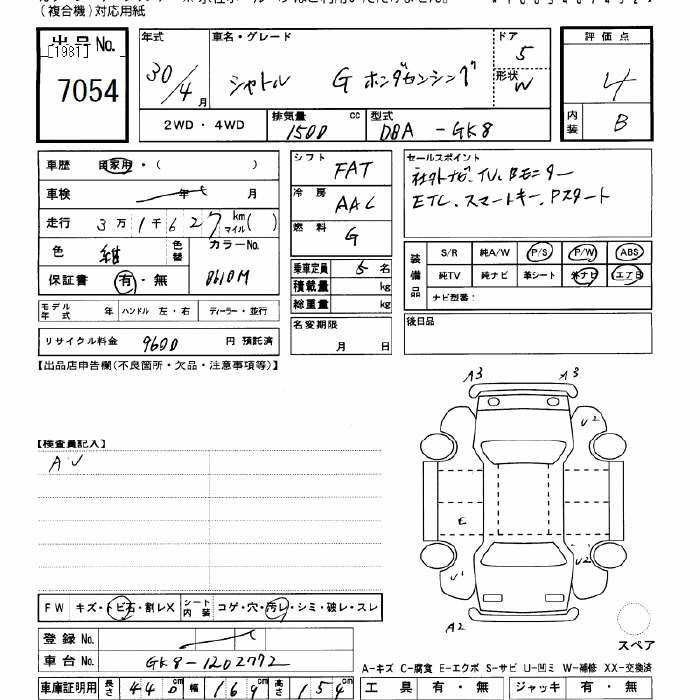 (複合機)対応用紙
出品No.
[1981]
7054
年式
30/4月
車名・グレード
シャトル G ホンダセンシング
ドア
5
形状
W
評価点
4
内装
B
2WD・4WD
排気量
1500 cc
型式
DBA-GK8
車歴 自家用・( )
車検 年 月
走行 3万1千627 km マイル( )
色 紺 色替
カラーNo.
B610M
保証書 有・無
モデル年式 年 ハンドル 左・右 ディーラー・並行
リサイクル料金 9600 円 預託済
シフト FAT
冷房 AAC
燃料 G
乗車定員 5名
積載量 kg
総重量 kg
名変期限
月 日
セールスポイント
社外ナビ、TV、Bモニター
ETC、スマートキー、Pスタート
装備品
S/R 純A/W P/S P/W ABS
純TV 純ナビ 革シート 外ナビ エアB
ナビ型番:
後日品
【出品店申告欄(不良箇所・欠品・注意事項等)】
【検査員記入】
AU
A3 A3
U2
E
U1
U2
A2
スペア
FW キズ・トビ石・割レX シート内装 コゲ・穴・汚レ・シミ・破レ・スレ
登録No.
車台No. GK8-1202772
車庫証明用 長さ 440cm 幅 169cm 高さ 154cm
A-キズ C-腐食 E-エクボ S-サビ U-凹ミ W-補修 XX-交換済
工具 有・無 ジャッキ 有・無